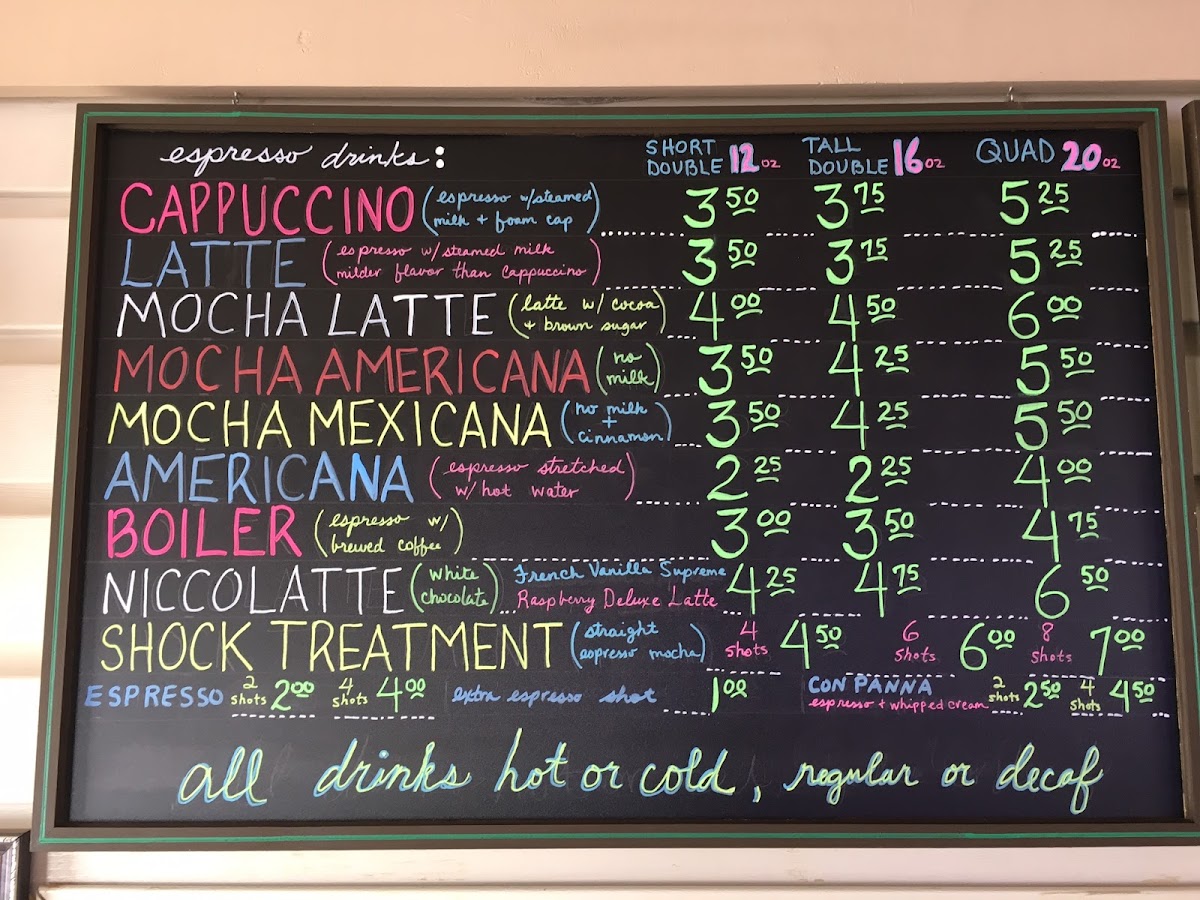 espresso drinks: SHORT DOUBLE 12 oz TALL DOUBLE 16 oz QUAD 20 oz
CAPPUCCINO (espresso w/steamed milk + foam cap) 3 50 3 75 5 25
LATTE (espresso w/steamed milk milder flavor than cappuccino) 3 50 3 75 5 25
MOCHA LATTE (latte w/ cocoa + brown sugar) 4 00 4 50 6 00
MOCHA AMERICANA (no milk) 3 50 4 25 5 50
MOCHA MEXICANA (no milk + cinnamon) 3 50 4 25 5 50
AMERICANA (espresso stretched w/hot water) 2 25 2 25 4 00
BOILER (espresso w/ brewed coffee) 3 00 3 50 4 75
NICCOLATTE (white chocolate) French Vanilla Supreme Raspberry Deluxe Latte 4 25 4 75 6 50
SHOCK TREATMENT (straight espresso mocha) 4 shots 4 50 6 shots 6 00 8 shots 7 00
ESPRESSO 2 shots 2 00 4 shots 4 00 extra espresso shot 1 00 CON PANNA espresso + whipped cream 2 shots 2 50 4 shots 4 50
all drinks hot or cold, regular or decaf